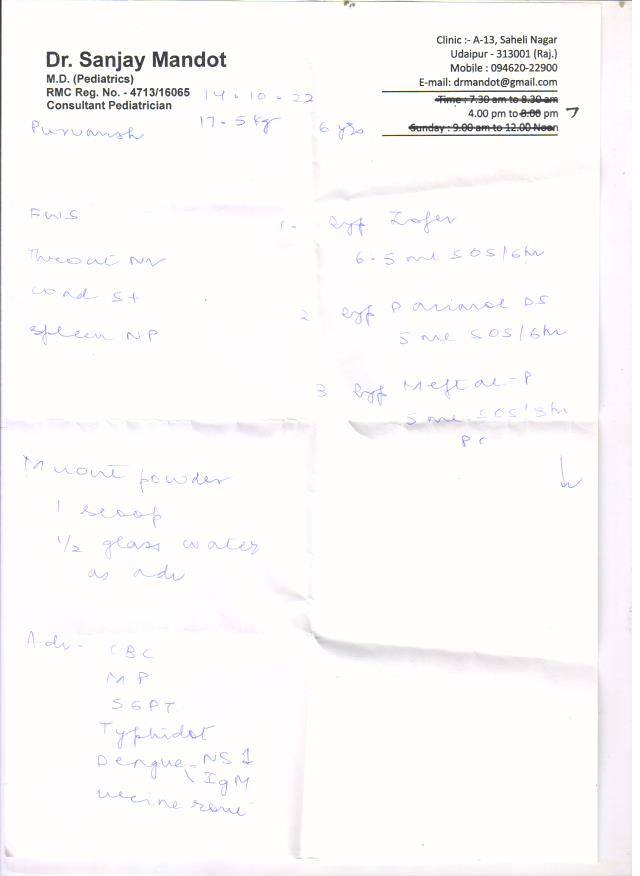 Dr. Sanjay Mandot
M.D. (Pediatrics)
RMC Reg. No. - 4713/16065
Consultant Pediatrician
Clinic :- A-13, Saheli Nagar
Udaipur - 313001 (Raj.)
Mobile : 094620-22900
E-mail: drmandot@gmail.com
Time : 7.30 am to 8.30 am
4.00 pm to 8.00 pm 7
Sunday : 9.00 am to 12.00 Noon
14.10.22
Purvansh 17.5 kg 6 yrs
FWS
Throat
S+
Spleen NP
1- Syp Zofer
6.5 ml SOS/6hr
2 Syp DS
5 ml SOS/6hr
3 Syp Meftal-P
5 ml SOS/8hr
PC
powder
1 scoop
1/2 glass water
as adv
Adv- CBC
MP
SGPT
Typhidot
Dengue - NS1
IgM